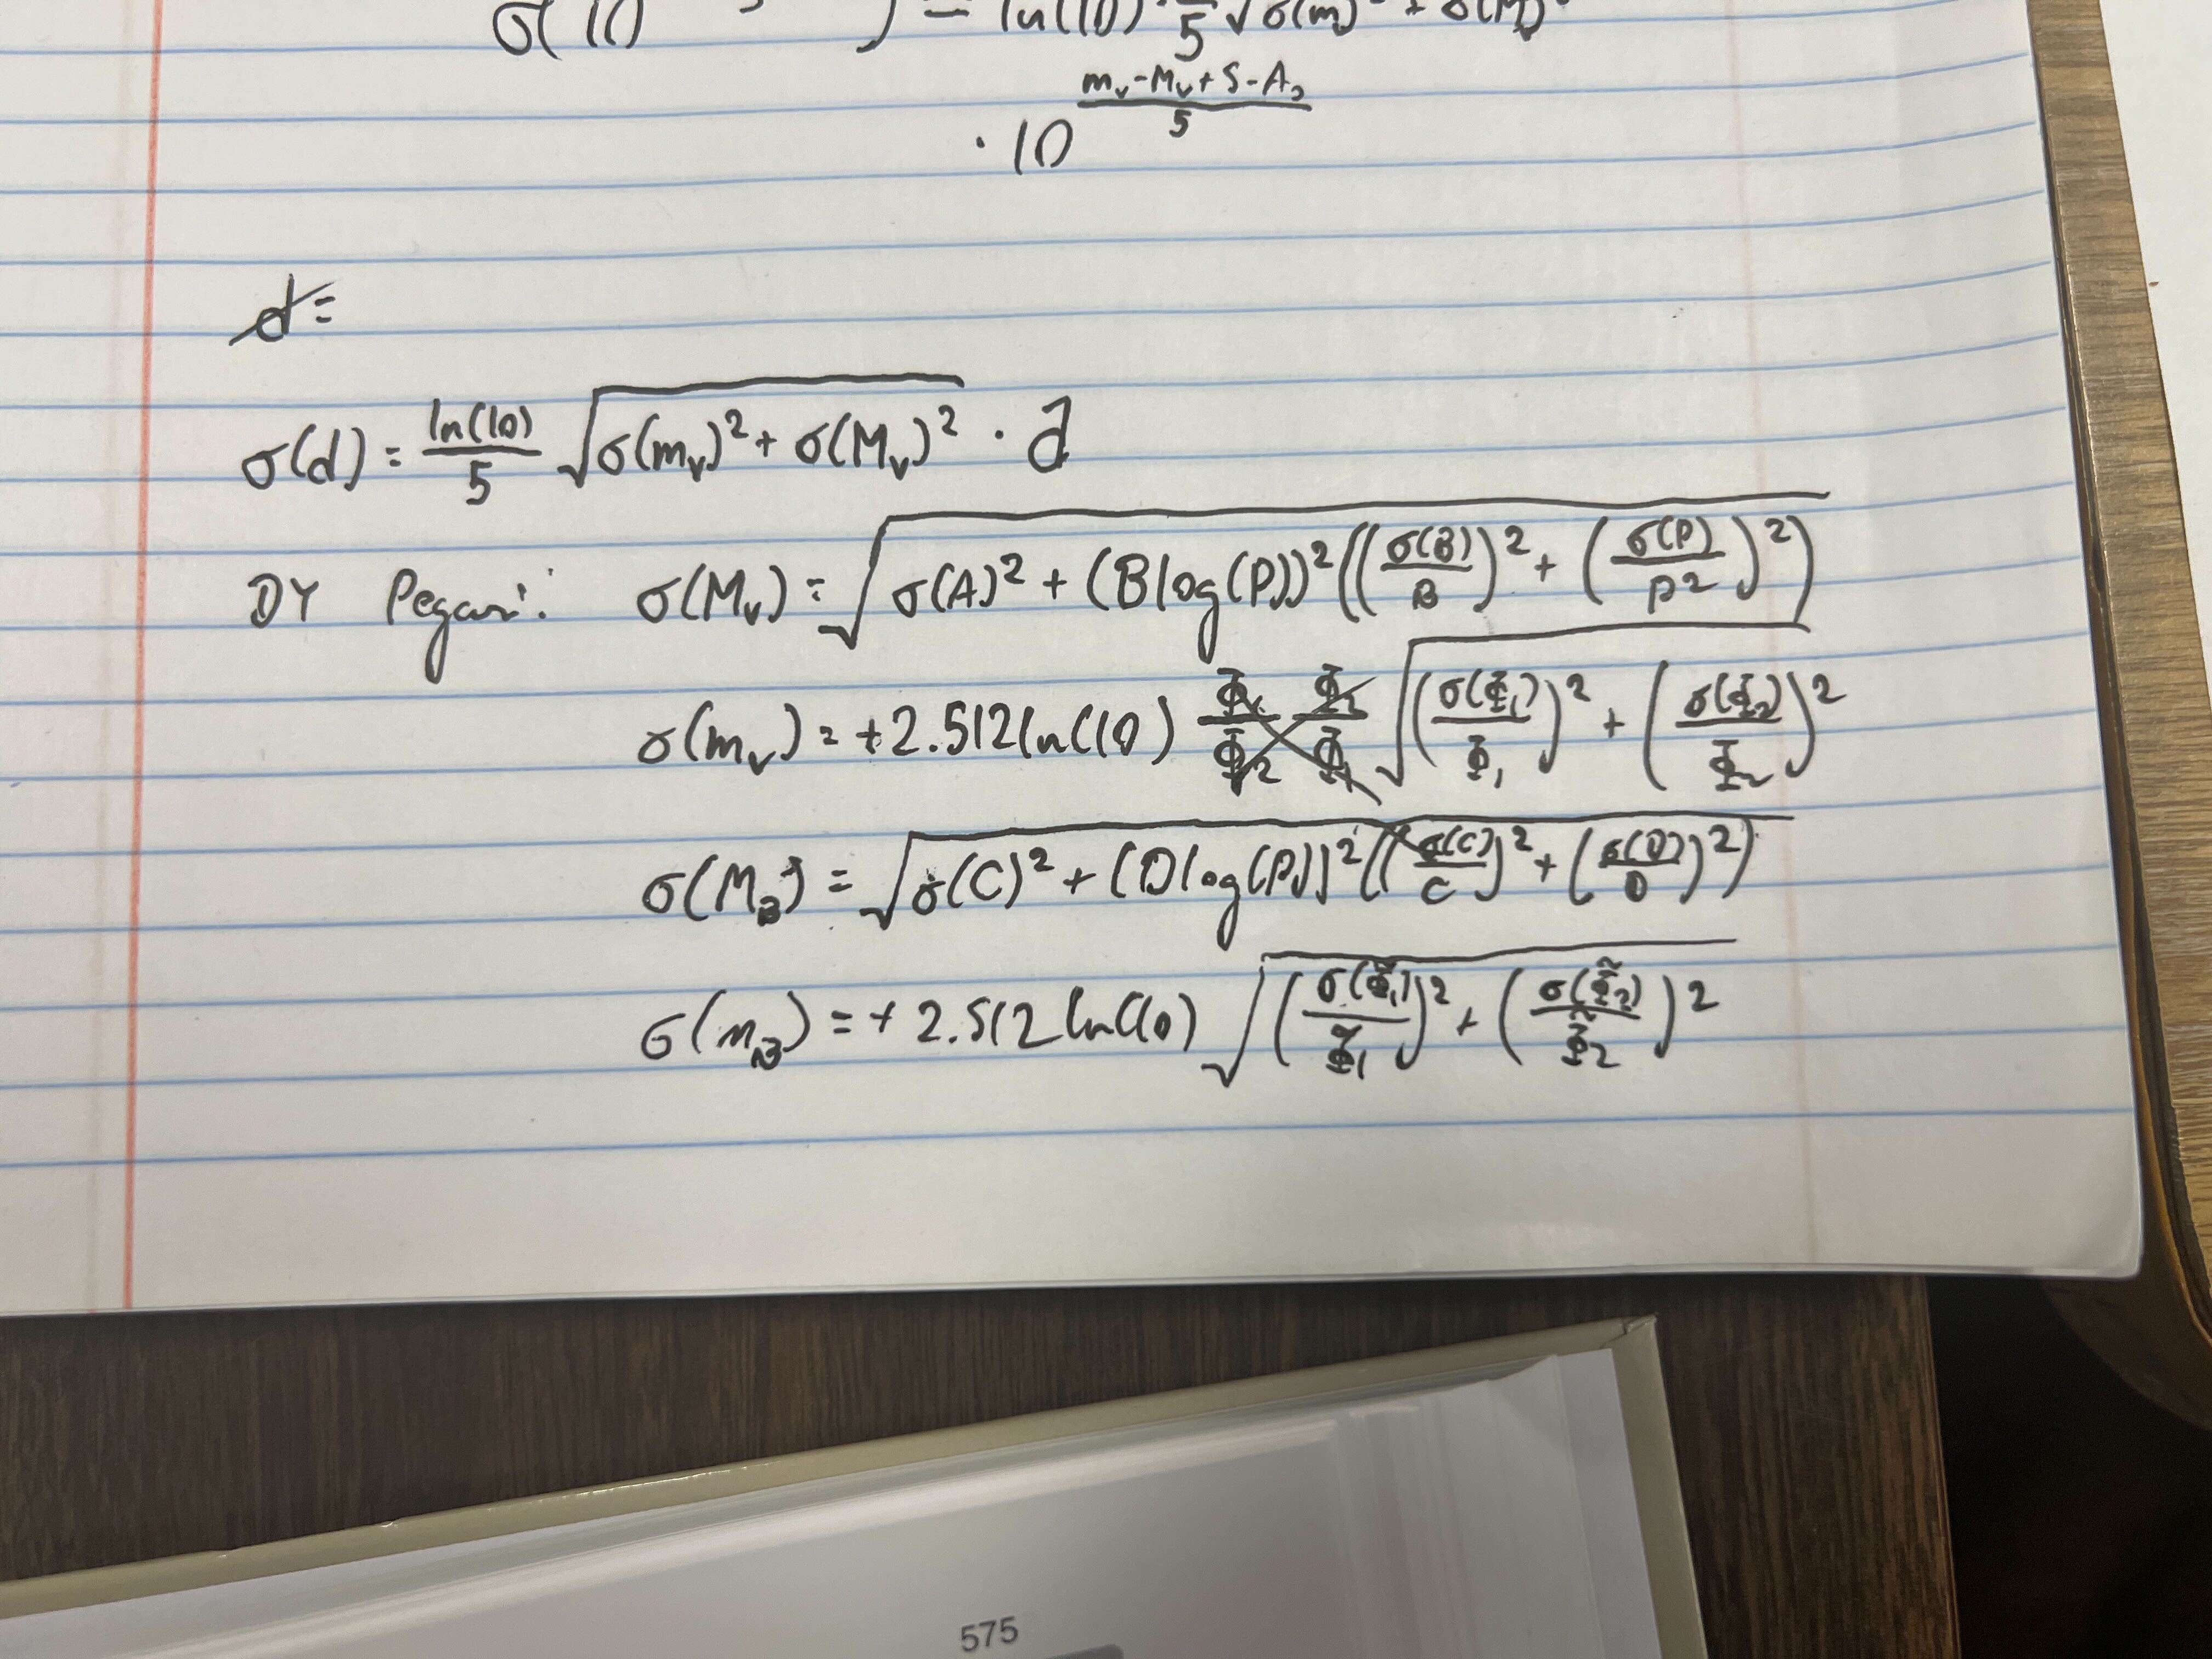 σ(10 ) = ln(10) · 1/5 √(σ(m)² + σ(M)²)
· 10^((m_v - M_v + 5 - A_v)/5)
d =
σ(d) = ln(10)/5 √(σ(m_v)² + σ(M_v)²) · d
DY Pegasi: σ(M_v) = √(σ(A)² + (B log(P))² ((σ(B)/B)² + (σ(P)/P²)²))
σ(m_v) = +2.512 ln(10) Φ₁/Φ₂ Φ₂/Φ₁ √((σ(Φ₁)/Φ₁)² + (σ(Φ₂)/Φ₂)²)
σ(M_B) = √(σ(C)² + (D log(P))² ((σ(C)/C)² + (σ(D)/D)²))
σ(m_B) = + 2.512 ln(10) √((σ(Φ̃₁)/Φ̃₁)² + (σ(Φ̃₂)/Φ̃₂)²)
575